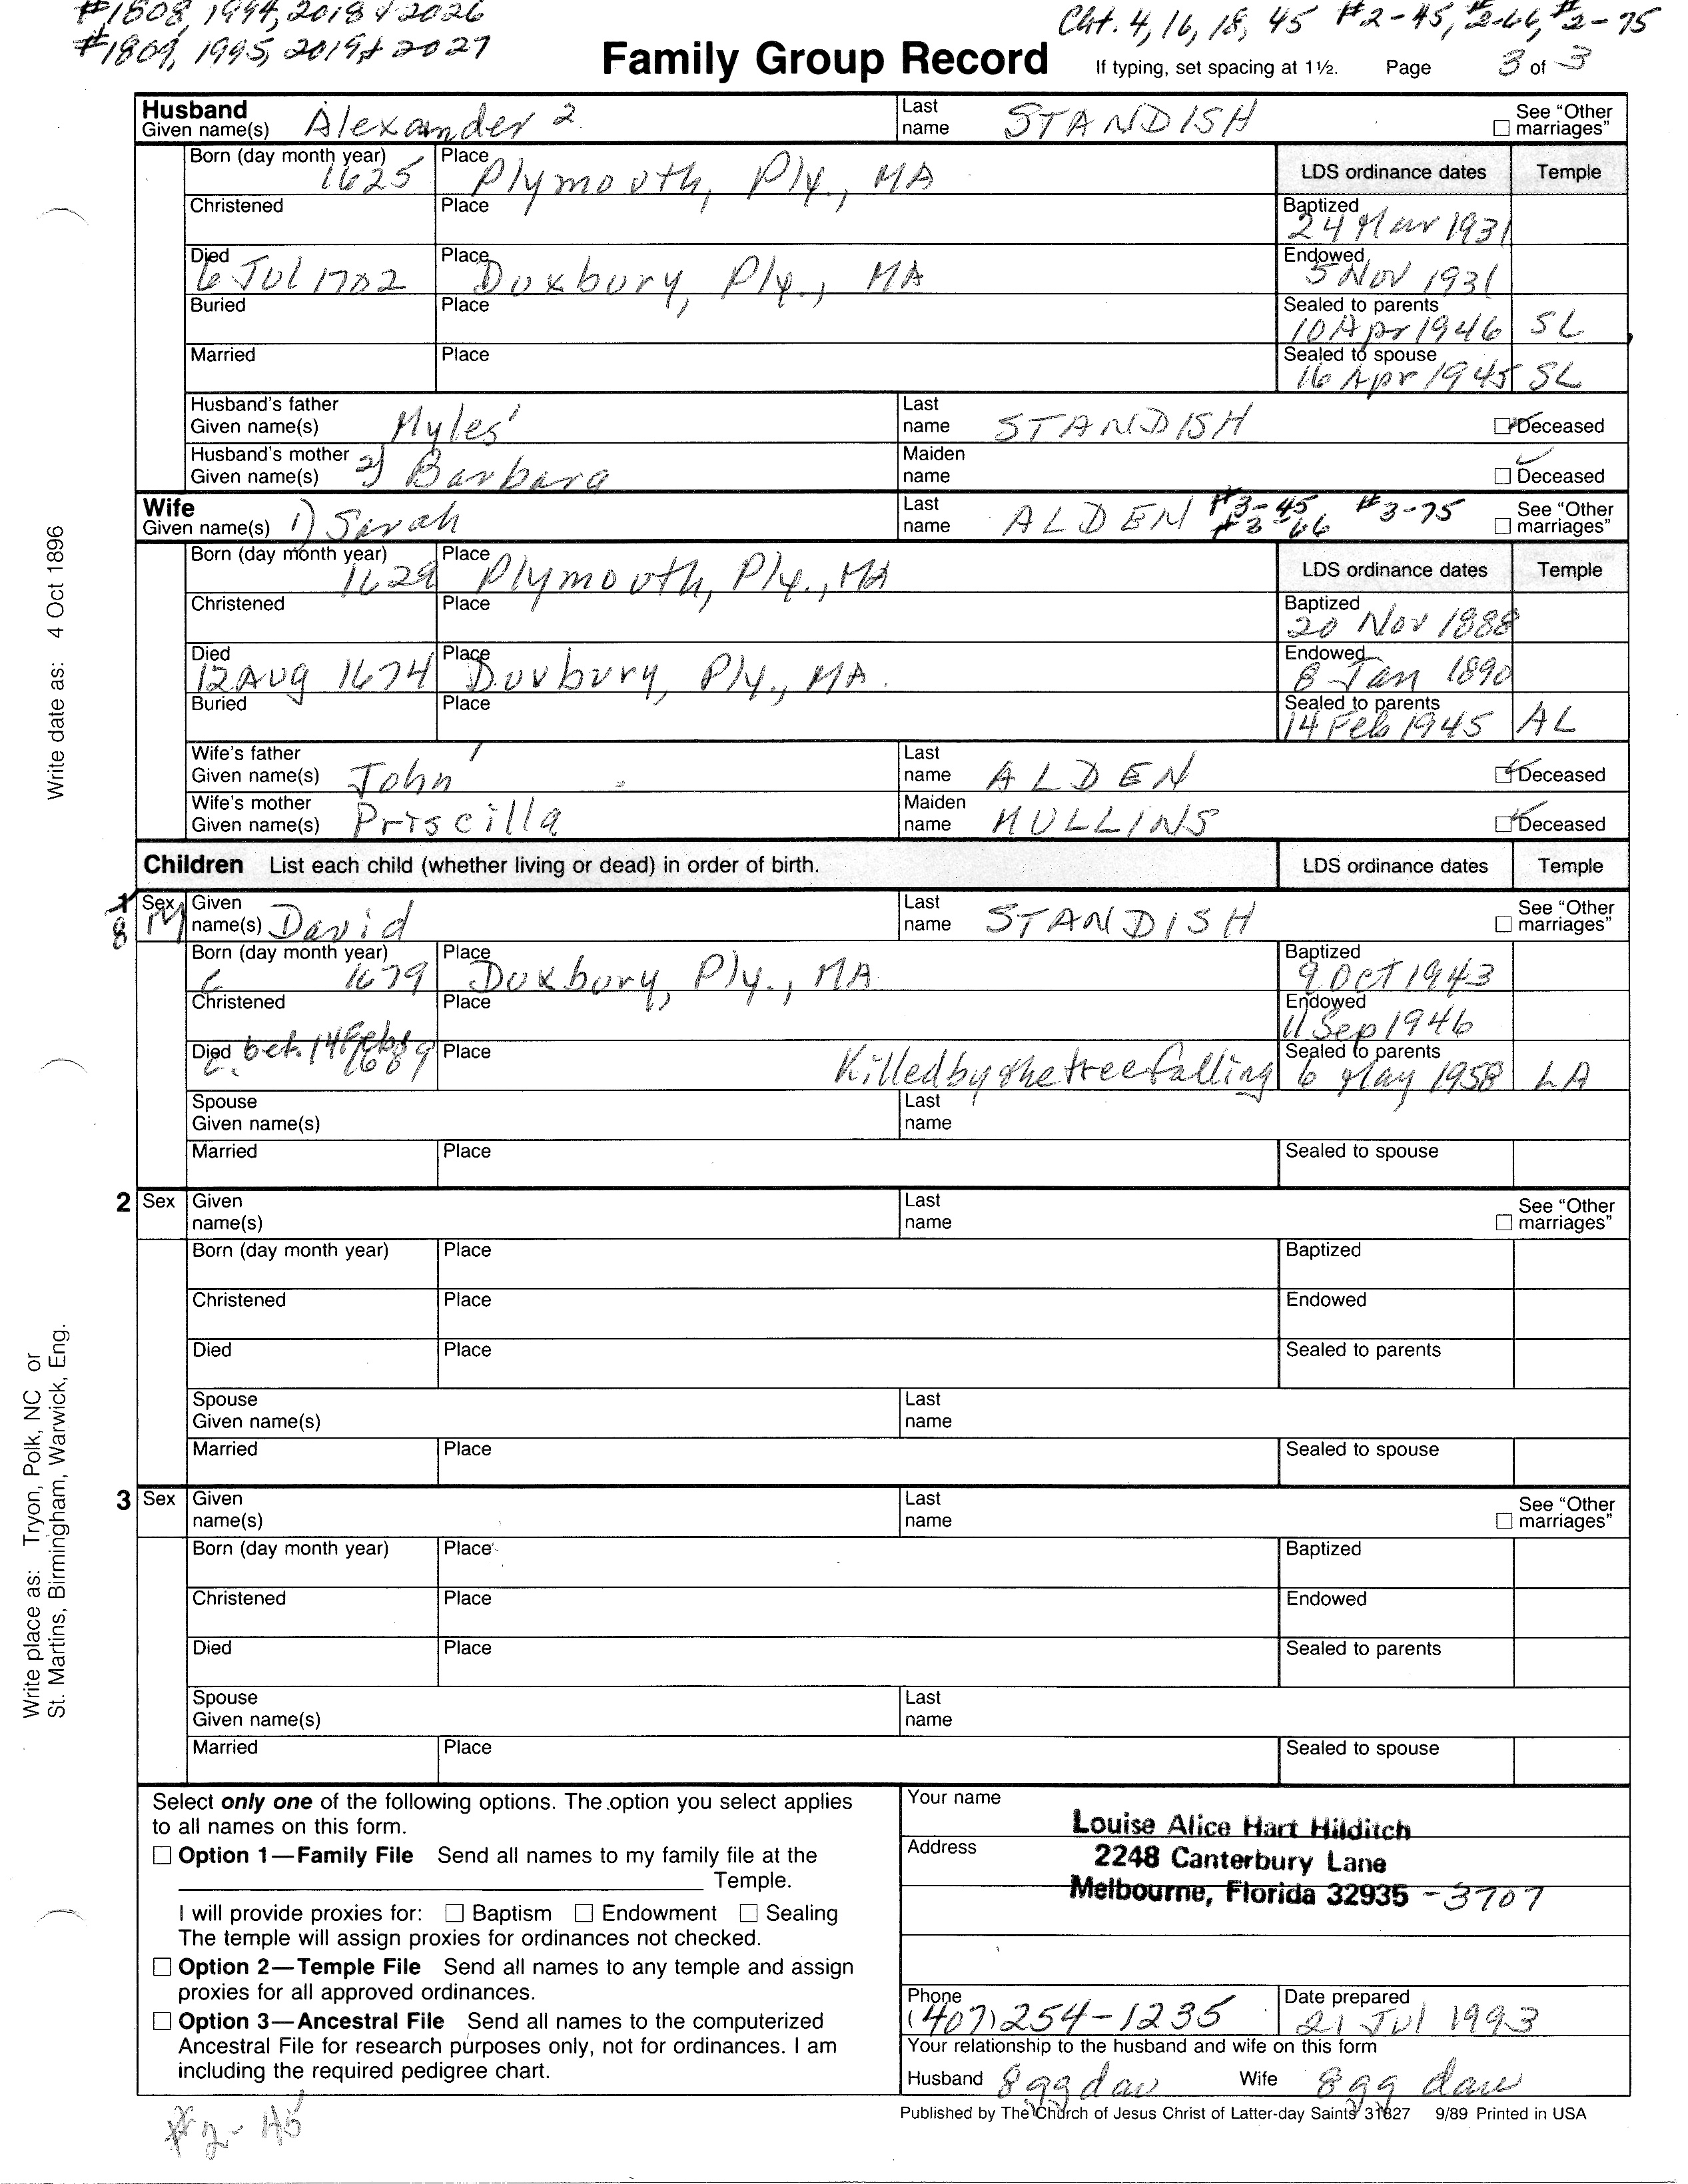 #1808, 1994, 2018 & 2026
#1809, 1995, 2019 & 2027
Cht. 4, 16, 18, 45 #2-45, #2-66, #2-75
Family Group Record If typing, set spacing at 1½. Page 3 of 3
Husband
Given name(s) Alexander 2
Last name STANDISH
See "Other marriages"
Born (day month year) 1625
Place Plymouth, Ply., MA
LDS ordinance dates Temple
Christened
Place
Baptized 24 Mar 1931
Died 6 Jul 1702
Place Duxbury, Ply., MA
Endowed 5 Nov 1931
Buried
Place
Sealed to parents 10 Apr 1946 SL
Married
Place
Sealed to spouse 16 Apr 1945 SL
Husband's father
Given name(s) Myles'
Last name STANDISH
Deceased
Husband's mother
Given name(s) 2) Barbara
Maiden name
Deceased
Wife
Given name(s) 1) Sarah
Last name ALDEN #3-45 #3-66 #3-75
See "Other marriages"
Born (day month year) 1629
Place Plymouth, Ply., MA
LDS ordinance dates Temple
Christened
Place
Baptized 20 Nov 1888
Died 12 Aug 1674
Place Duxbury, Ply., MA.
Endowed 8 Jan 1890
Buried
Place
Sealed to parents 14 Feb 1945 AL
Wife's father
Given name(s) John'
Last name ALDEN
Deceased
Wife's mother
Given name(s) Priscilla
Maiden name MULLINS
Deceased
Children List each child (whether living or dead) in order of birth.
LDS ordinance dates Temple
8 Sex M
Given name(s) David
Last name STANDISH
See "Other marriages"
Born (day month year) c 1679
Place Duxbury, Ply., MA
Baptized 9 OCT 1943
Christened
Place
Endowed 11 Sep 1946
Died c. bet. 14 Feb 1689
Place Killed by the tree falling
Sealed to parents 6 May 1958 LA
Spouse
Given name(s)
Last name
Married
Place
Sealed to spouse
2 Sex
Given name(s)
Last name
See "Other marriages"
Born (day month year)
Place
Baptized
Christened
Place
Endowed
Died
Place
Sealed to parents
Spouse
Given name(s)
Last name
Married
Place
Sealed to spouse
3 Sex
Given name(s)
Last name
See "Other marriages"
Born (day month year)
Place
Baptized
Christened
Place
Endowed
Died
Place
Sealed to parents
Spouse
Given name(s)
Last name
Married
Place
Sealed to spouse
Write date as: 4 Oct 1896
Write place as: Tryon, Polk, NC or
St. Martins, Birmingham, Warwick, Eng.
Select only one of the following options. The option you select applies
to all names on this form.
Option 1—Family File Send all names to my family file at the
Temple.
I will provide proxies for: Baptism Endowment Sealing
The temple will assign proxies for ordinances not checked.
Option 2—Temple File Send all names to any temple and assign
proxies for all approved ordinances.
Option 3—Ancestral File Send all names to the computerized
Ancestral File for research purposes only, not for ordinances. I am
including the required pedigree chart.
Your name Louise Alice Hart Hilditch
Address 2248 Canterbury Lane
Melbourne, Florida 32935 -3707
Phone (407) 254-1235
Date prepared 21 Jul 1993
Your relationship to the husband and wife on this form
Husband 8 gg dau Wife 8 gg dau
Published by The Church of Jesus Christ of Latter-day Saints 31827 9/89 Printed in USA
#2-45